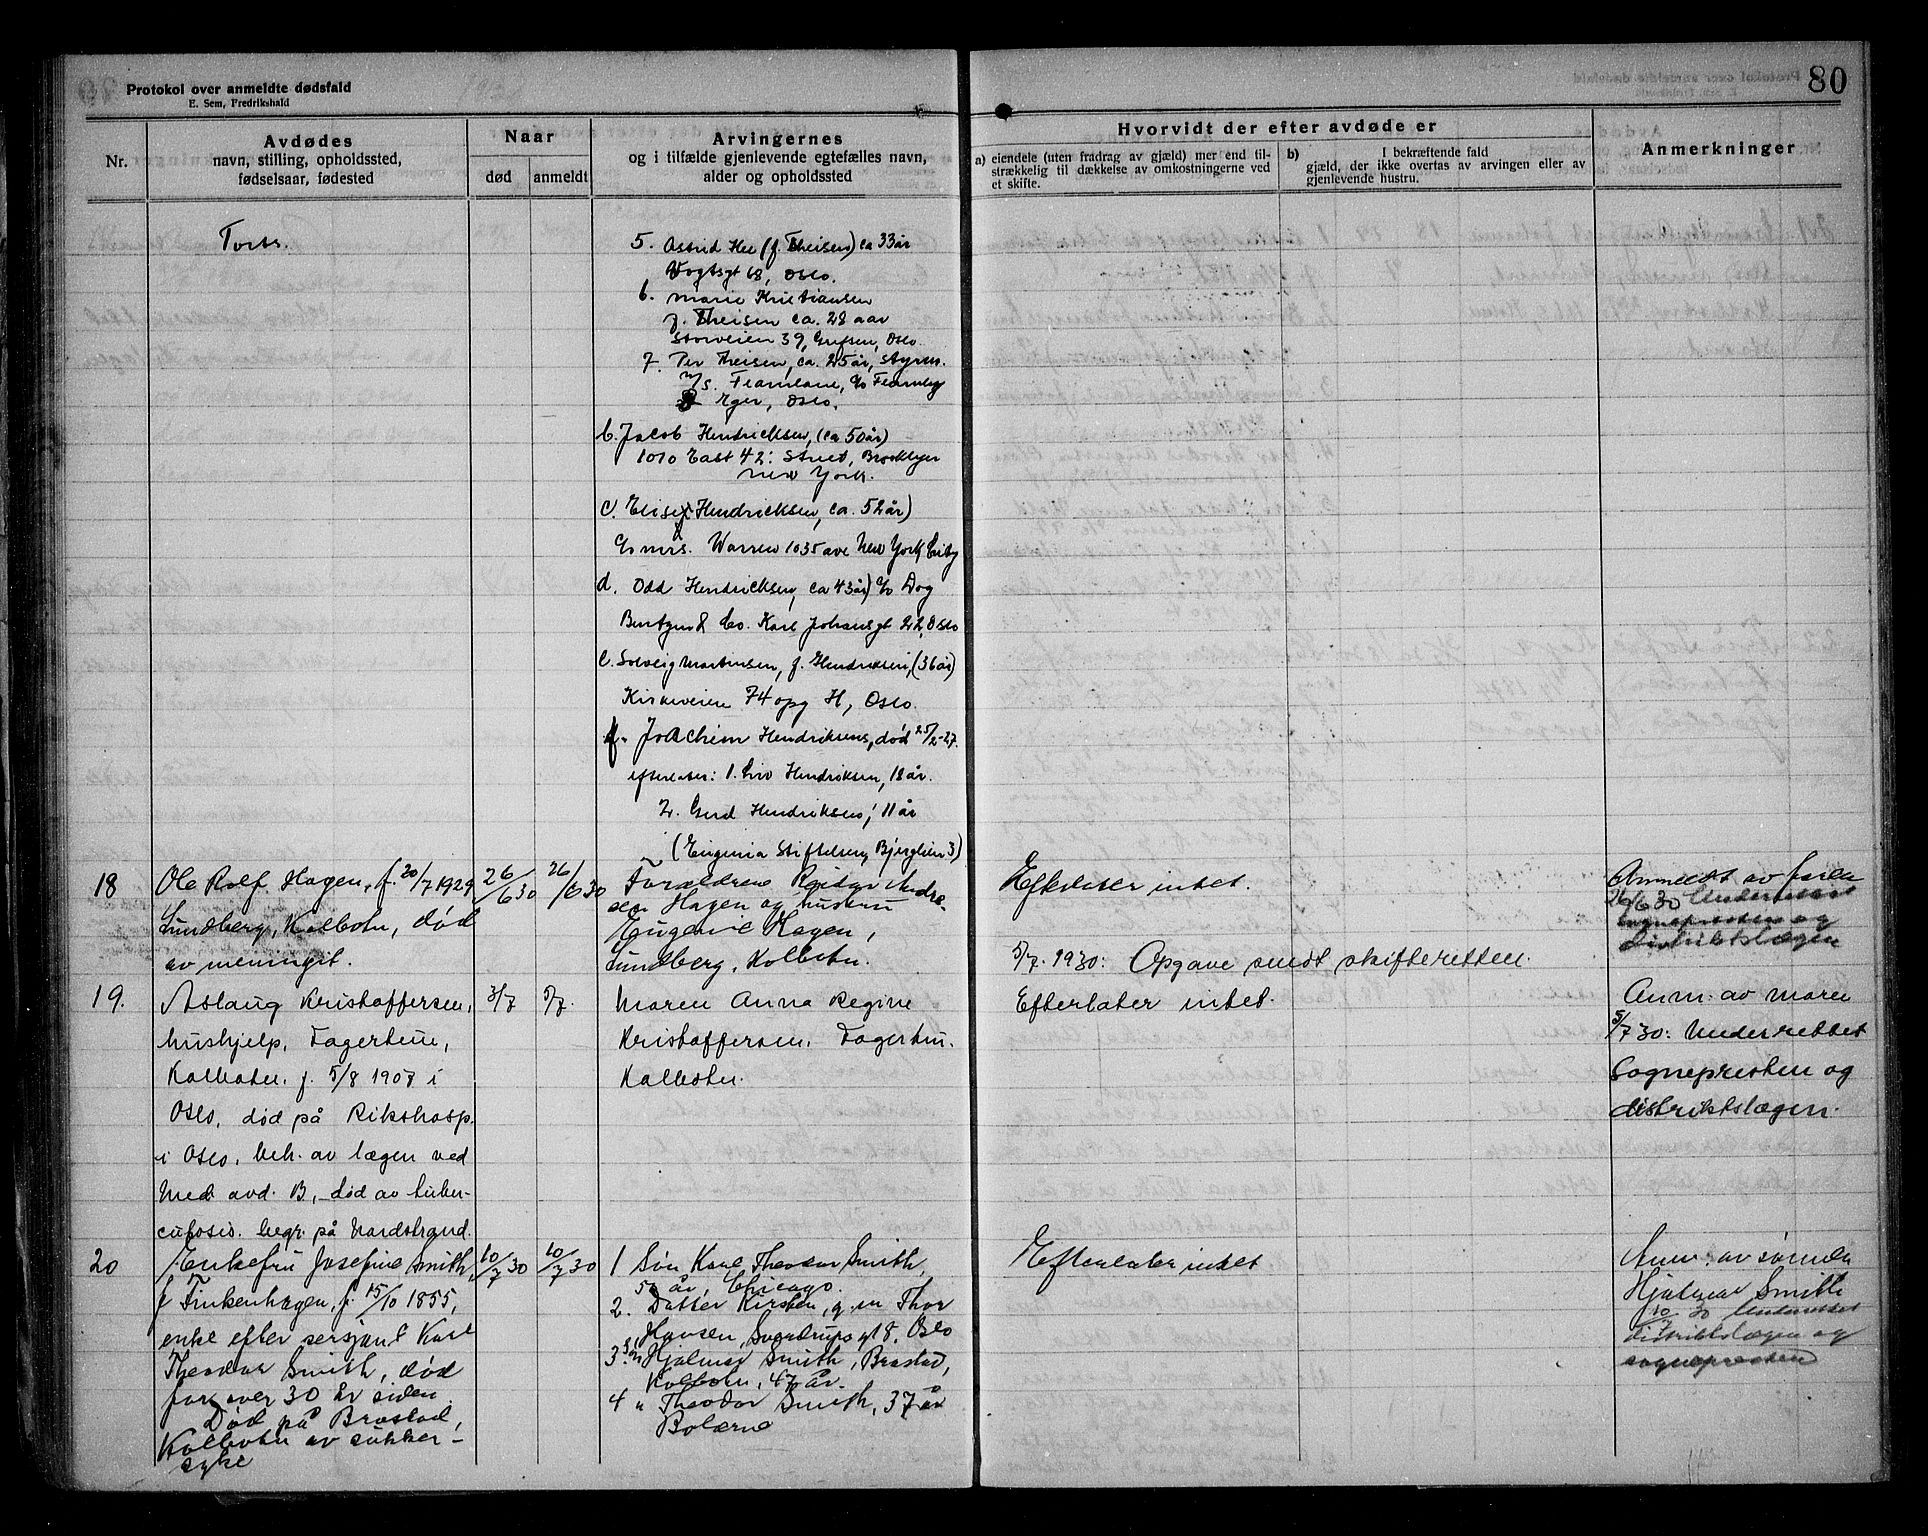 Protokol over anmeldte dødsfald
E. Sem, Fredrikshald
80
Nr.
Avdødes
navn, stilling, opholdssted,
fødselsaar, fødested
Naar
død
anmeldt
Arvingernes
og i tilfælde gjenlevende egtefælles navn,
alder og opholdssted
Hvorvidt der efter avdøde er
a) eiendele (uten fradrag av gjæld) mer end til-
strækkelig til dækkelse av omkostningerne ved
et skifte.
b) I bekræftende fald
gjæld, der ikke overtas av arvingen eller av
gjenlevende hustru.
Anmerkninger
Forts.
5. Astrid Hee (f. Theisen) ca 33 år
Vogtsgt 68, Oslo.
6. Marie Kristiansen
f. Theisen ca. 28 aar
Storveien 39, Grefsen, Oslo.
7. Per Theisen, ca. 25 år, styrm.
m/s. Fernlane, c/o Fearnley
& Eger, Oslo.
b. Jacob Hendricksen, (ca 50 år)
1010 East 42: Street, Brooklyn
New York.
c. Elise Hendricksen, ca. 52 år)
c/o mrs. Warren 1035 ave New York City
d. Odd Hendricksen, ca 43 år) c/o Dog
& Co. Karl Johansgt 22, Oslo
e. Solveig Martinsen, f. Hendriksen, (36 år)
Kirkeveien 74 opg H, Oslo.
f. Joachim Hendriksens, død 25/2-27.
efterlater: 1. Liv Hendriksen, 18 år.
2. Gerd Hendriksen, 11 år
(Eugenia Stiftelsen, Bjerglien 3)
18
Ole Rolf Hagen, f. 20/7 1929,
Lundberg, Kolbotn, død
av meningit.
26/6 30
26/6 30
Forældrene Reidar Andre-
sen Hagen og hustru
Eugenie Hagen,
Lundberg, Kolbotn.
Efterlater intet.
5/7. 1930: Opgave sendt skifteretten.
Anmeldt av faren
26/6 30 Underrettet
sognepresten og
distriktslægen
19.
Aslaug Kristoffersen,
hushjelp, Fagertun,
Kolbotn. f. 5/8 1907 i
Oslo, død på Rikshosp.
i Oslo, beh. av lægen ved
Med avd. B, død av tuber-
culosis. begr. på Nordstrand.
3/7
5/7.
Maren Anna Regine
Kristoffersen. Fagertun.
Kolbotn.
Efterlater intet.
Anm. av Maren
5/7 30: Underrettet
Sognepresten og
distriktslægen.
20
Enkefru Josefine Smith,
f Finkenhagen, f. 15/10 1855,
enke efter sersjant Karl
Theodor Smith, død
for over 30 år siden.
Død på Brastad,
Kolbotn av sukker-
syke
10/7 30
10/7 30
1 Søn Karl Theodor Smith,
50 år, Chicago.
2. Datter Kirsten, g. m Thor
Hansen, Sverdrups gt 8, Oslo
3. Søn Hjalmar Smith, Brastad,
Kolbotn, 47 år.
4 " Theodor Smith, 37 år
Bolærne
Efterlater intet
Anm. av sønnen
Hjalmar Smith
10/7 30 Underrettet
distriktslægen og
sognepresten